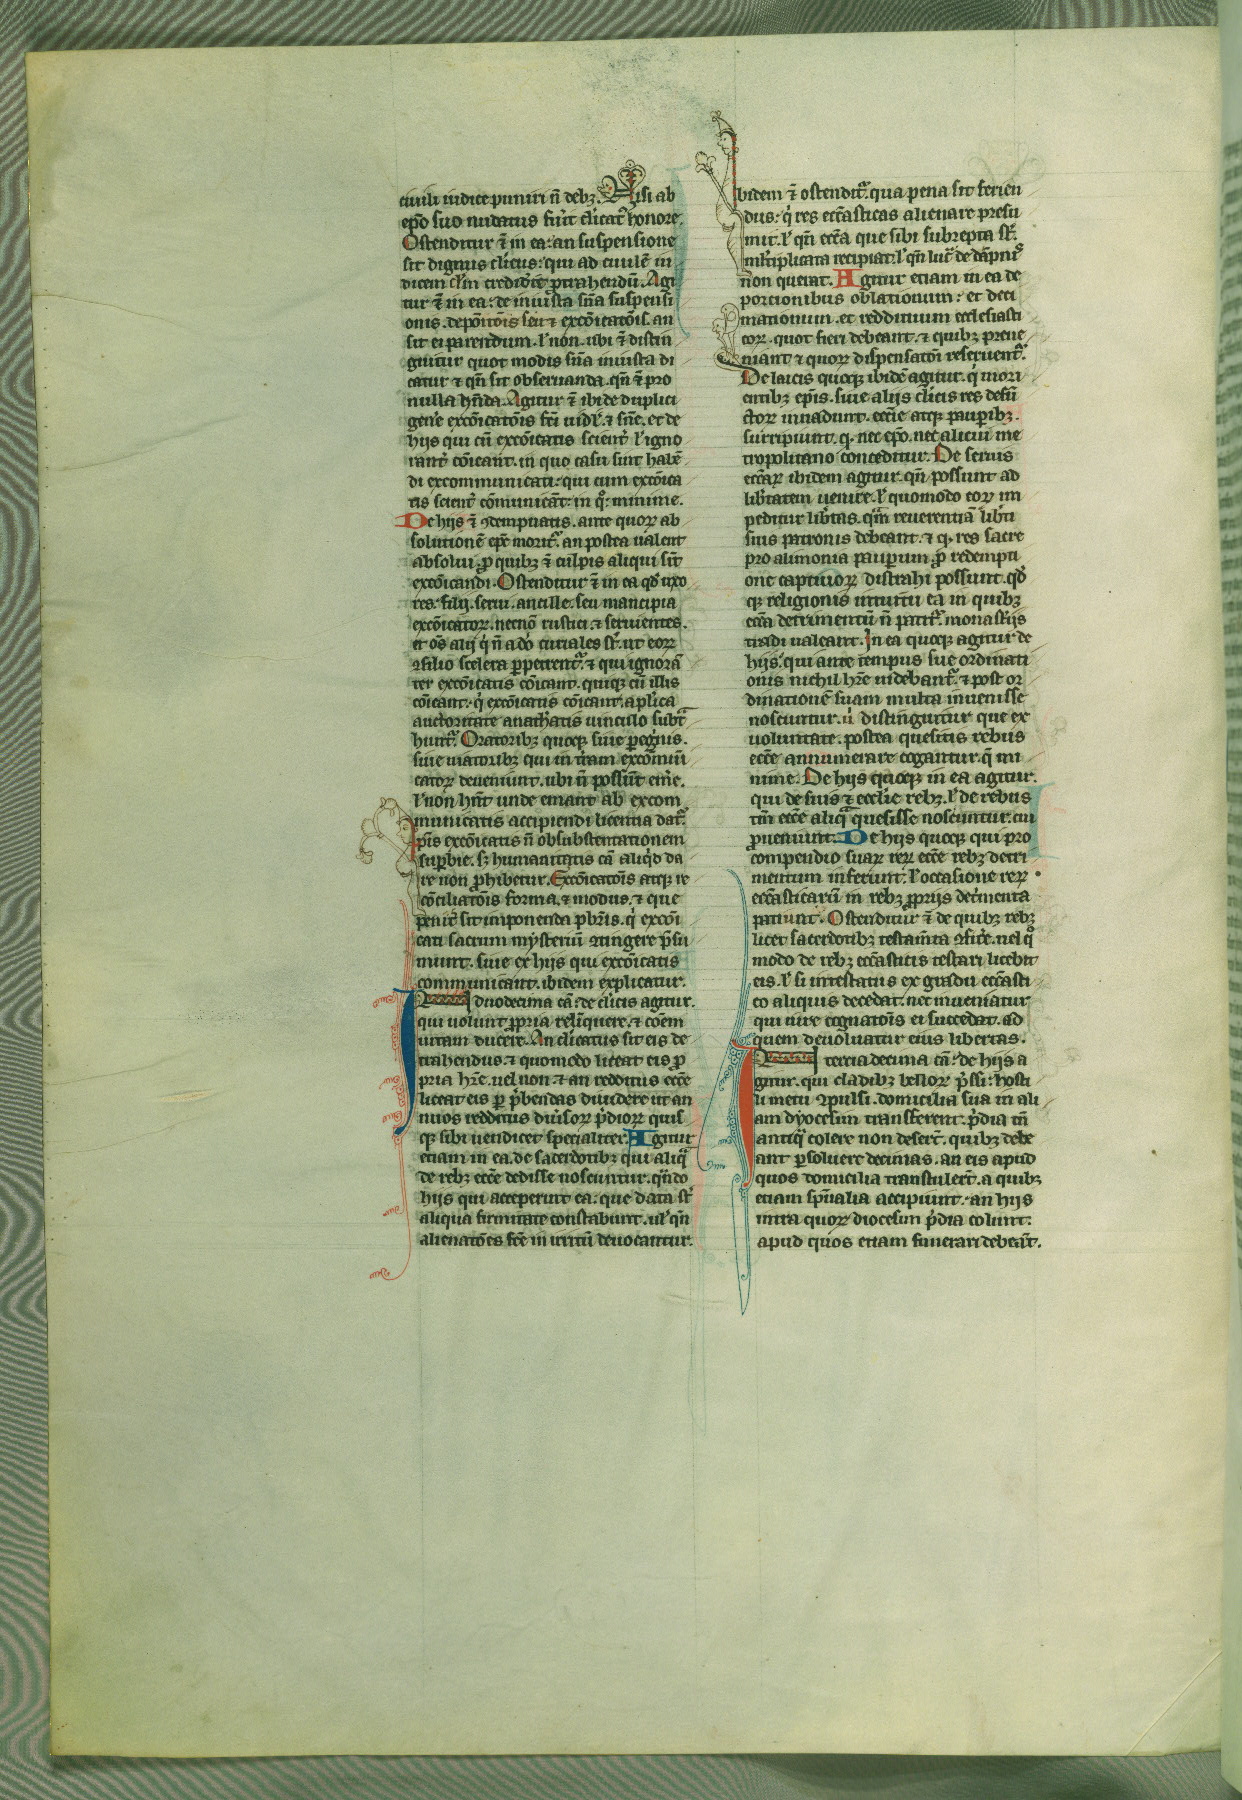 ciuili iudice puniri n̄ debꝫ. Nisi ab
ep̄o suo nudatus fūit cl̓icat᷒ honore.
Ostenditur ⁊̄ in ea: an suspensione
sit dignus cl̓icus: qui ad ciuilē iu
dicem cl̓im crediđit ꝑtrahendū. Agi
tur ⁊̄ in ea: de iniusta sn̄a suspensi
onis. depōitōis seu ⁊ excōicatōis. an
sit ei parendum. l̓ non. ubi ⁊̄ distin
guitur quot modis sn̄a iniusta di
catur ⁊ qn̄ sit obseruanda. qn̄ ⁊̄ pro
nulla hn̄da. Agitur ⁊̄ ibidē duplici
gen̓e excōicatōis. et de
hijs qui cū excōicatis scient᷑ l̓ igno
rant᷑ cōicant. in quo casu sint habē
di excommunicati: qui cum excōica
tis scient᷑ cōmunicāt: in qͦ: minime.
De hijs ⁊̄ ꝯtempnatis. ante quoꝝ ab
solutionē ep̄c morit᷑. an postea ualent
absolui. ꝓ quibꝫ ⁊̄ culpis aliqui sīt
excōicandi. Ostenditur ⁊̄ in ea qđ uxo
res. filij. serui. ancille. seu mancipia
excōicatoꝝ. necnō rustici. ⁊ seruientes.
et om̄s alij q̓ n̄ adō curiales sūt. ut eoꝝ
ꝯsilio scelera ꝑpetrent᷑. ⁊ qui ignorā
ter excōicatis cōicant. quiqꝫ cū illis
cōicant. q̓ excōicatis cōicant. ap̄lica
auctoritate anath̄atis uinculo subt᷑
hunt᷑. Oratoribꝫ quoqꝫ siue ꝑeg̓nis.
siue uiatoribꝫ qui in t̄ram excōmūi
catoꝝ deueniunt. ubi n̄ possūt em̄e.
l̓ non hn̄t unde emant ab excom
municatis accipiendi licentia dat᷑.
p̄is excōicatis n̄ ob substentationem
suꝑbie. sꝫ humanitatis cā aliq̓d da
re non ꝓhibetur. Excōicatōis atqꝫ re
cōciliatōis forma. ⁊ modus. ⁊ que
penit̄. sit imponenda pbr̄is. q̓ excōi
cati sacrum mysteriū ꝯtingere p̄su
munt. siue ex hijs qui excōicatis
communicant. ibidem explicatur.
In duodecima cā: de cl̓icis agitur.
qui uolunt ꝓpria relīquere. ⁊ cōem
uitam ducere. An cl̓icatus sit eis de
trahendus. ⁊ quomodo liceat eis ꝓ
pria hr̄e. uel non ⁊ an redditus ecc̄e
liceat eis ꝑ p̄bendas diuidere ut an
nuos redditus diu̓soꝝ p̄dioꝝ quis
qꝫ sibi uendicet specialiter. Agitur
etiam in ea. de sacerdotibꝫ qui aliq̄
de rebꝫ ecc̄e dedisse noscuntur. qn̄do
hijs qui acceperunt ea: que data sūt
aliqua firmitate constabunt. ul̓ qn̄
alienatōes fcē in irritū deuocantur.
Ibidem ⁊̄ ostendit᷑. qua pena sit ferien
dus: q̓ res ecc̄asticas alienare presu
mit. l̓ qn̄ ecc̄a que sibi subrepta sūt.
ml̓tiplicata recipiat. l̓ qn̄ luc᷑ de dāpnis
non querat. Agitur etiam in ea de
portionibus oblationum: et deci
mationum. et reddituum ecclesiasti
coꝝ. quot fieri debeant. ⁊ quibꝫ proue
niant ⁊ quoꝝ dispensatōi reseruent᷑.
De laicis quoqꝫ ibidē agitur. q̓ mori
entibꝫ ep̄is. siue alijs cl̓icis res defū
ctoꝝ inuadunt. ecc̄ie atqꝫ pauꝑibꝫ.
surripiunt. q. nec ep̄o. nec alicui me
tropolitano conceditur. De seruis
ecc̄aꝝ ibidem agitur. qn̄ possunt ad
lib̓tatem uenire. l̓ quomodo eoꝝ im
peditur lib̓tas. q̄m reuerentiā lib̓ti
suis patronis debeant. ⁊ q. res sacre
pro alimonia pauꝑum. ꝓ redempti
one captiuoꝝ distrahi possunt. qđ
qꝫ religionis intuitu ea in quibꝫ
ecc̄a detrimentū n̄ patit᷑. monast̓ijs
tradi ualeant. In ea quoqꝫ agitur de
hijs: qui ante tempus sue ordinati
onis nichil hr̄e uidebant᷑. ⁊ post or
dinationē suam multa inuenisse
noscuntur. ū distinguitur que ex
uoluntate. postea quesitis rebus
ecc̄e annumerare cogantur. q̄ mi
nime. De hijs quoqꝫ in ea agitur.
qui de suis ⁊ eccl̓ie rebꝫ. l̓ de rebus
tm̄ ecc̄e aliq̄ quesisse noscuntur. cui
ꝓueniunt. De hijs quoqꝫ qui pro
compendio suaꝝ reꝝ ecc̄e rebꝫ detri
mentum inferunt: l̓ occasione reꝝ
ecc̄asticarū in rebꝫ ꝓprijs det̓menta
patiunt᷑. Ostenditur ⁊̄ de quibꝫ rebꝫ
licet sacerdotibꝫ testam̄ta ꝯfic̓e. uel qͦ
modo de rebꝫ ecc̄asticis testari licebit
eis. l̓ si intestatus ex gradu ecc̄asti
co aliquis decedat. nec inueniatur
qui iure cognatōis ei succedat. ad
quem deuoluatur eius libertas.
In tercia decima cā: de hijs a
gitur. qui cladibꝫ belloꝝ p̄ssi: hosti
li metu ꝯpulsi. domicilia sua in ali
am dyocesim transferent. p̄dia tn̄
antiq̄ colere non deser̄t. quibꝫ debe
ant ꝑsoluere decimas. an eis apud
quos domicilia transtuler̄t. a quibꝫ
etiam sp̄ualia accipiunt. an hijs
intra quoꝝ diocesim p̄dia colunt:
apud quos etiam funerari debeāt.